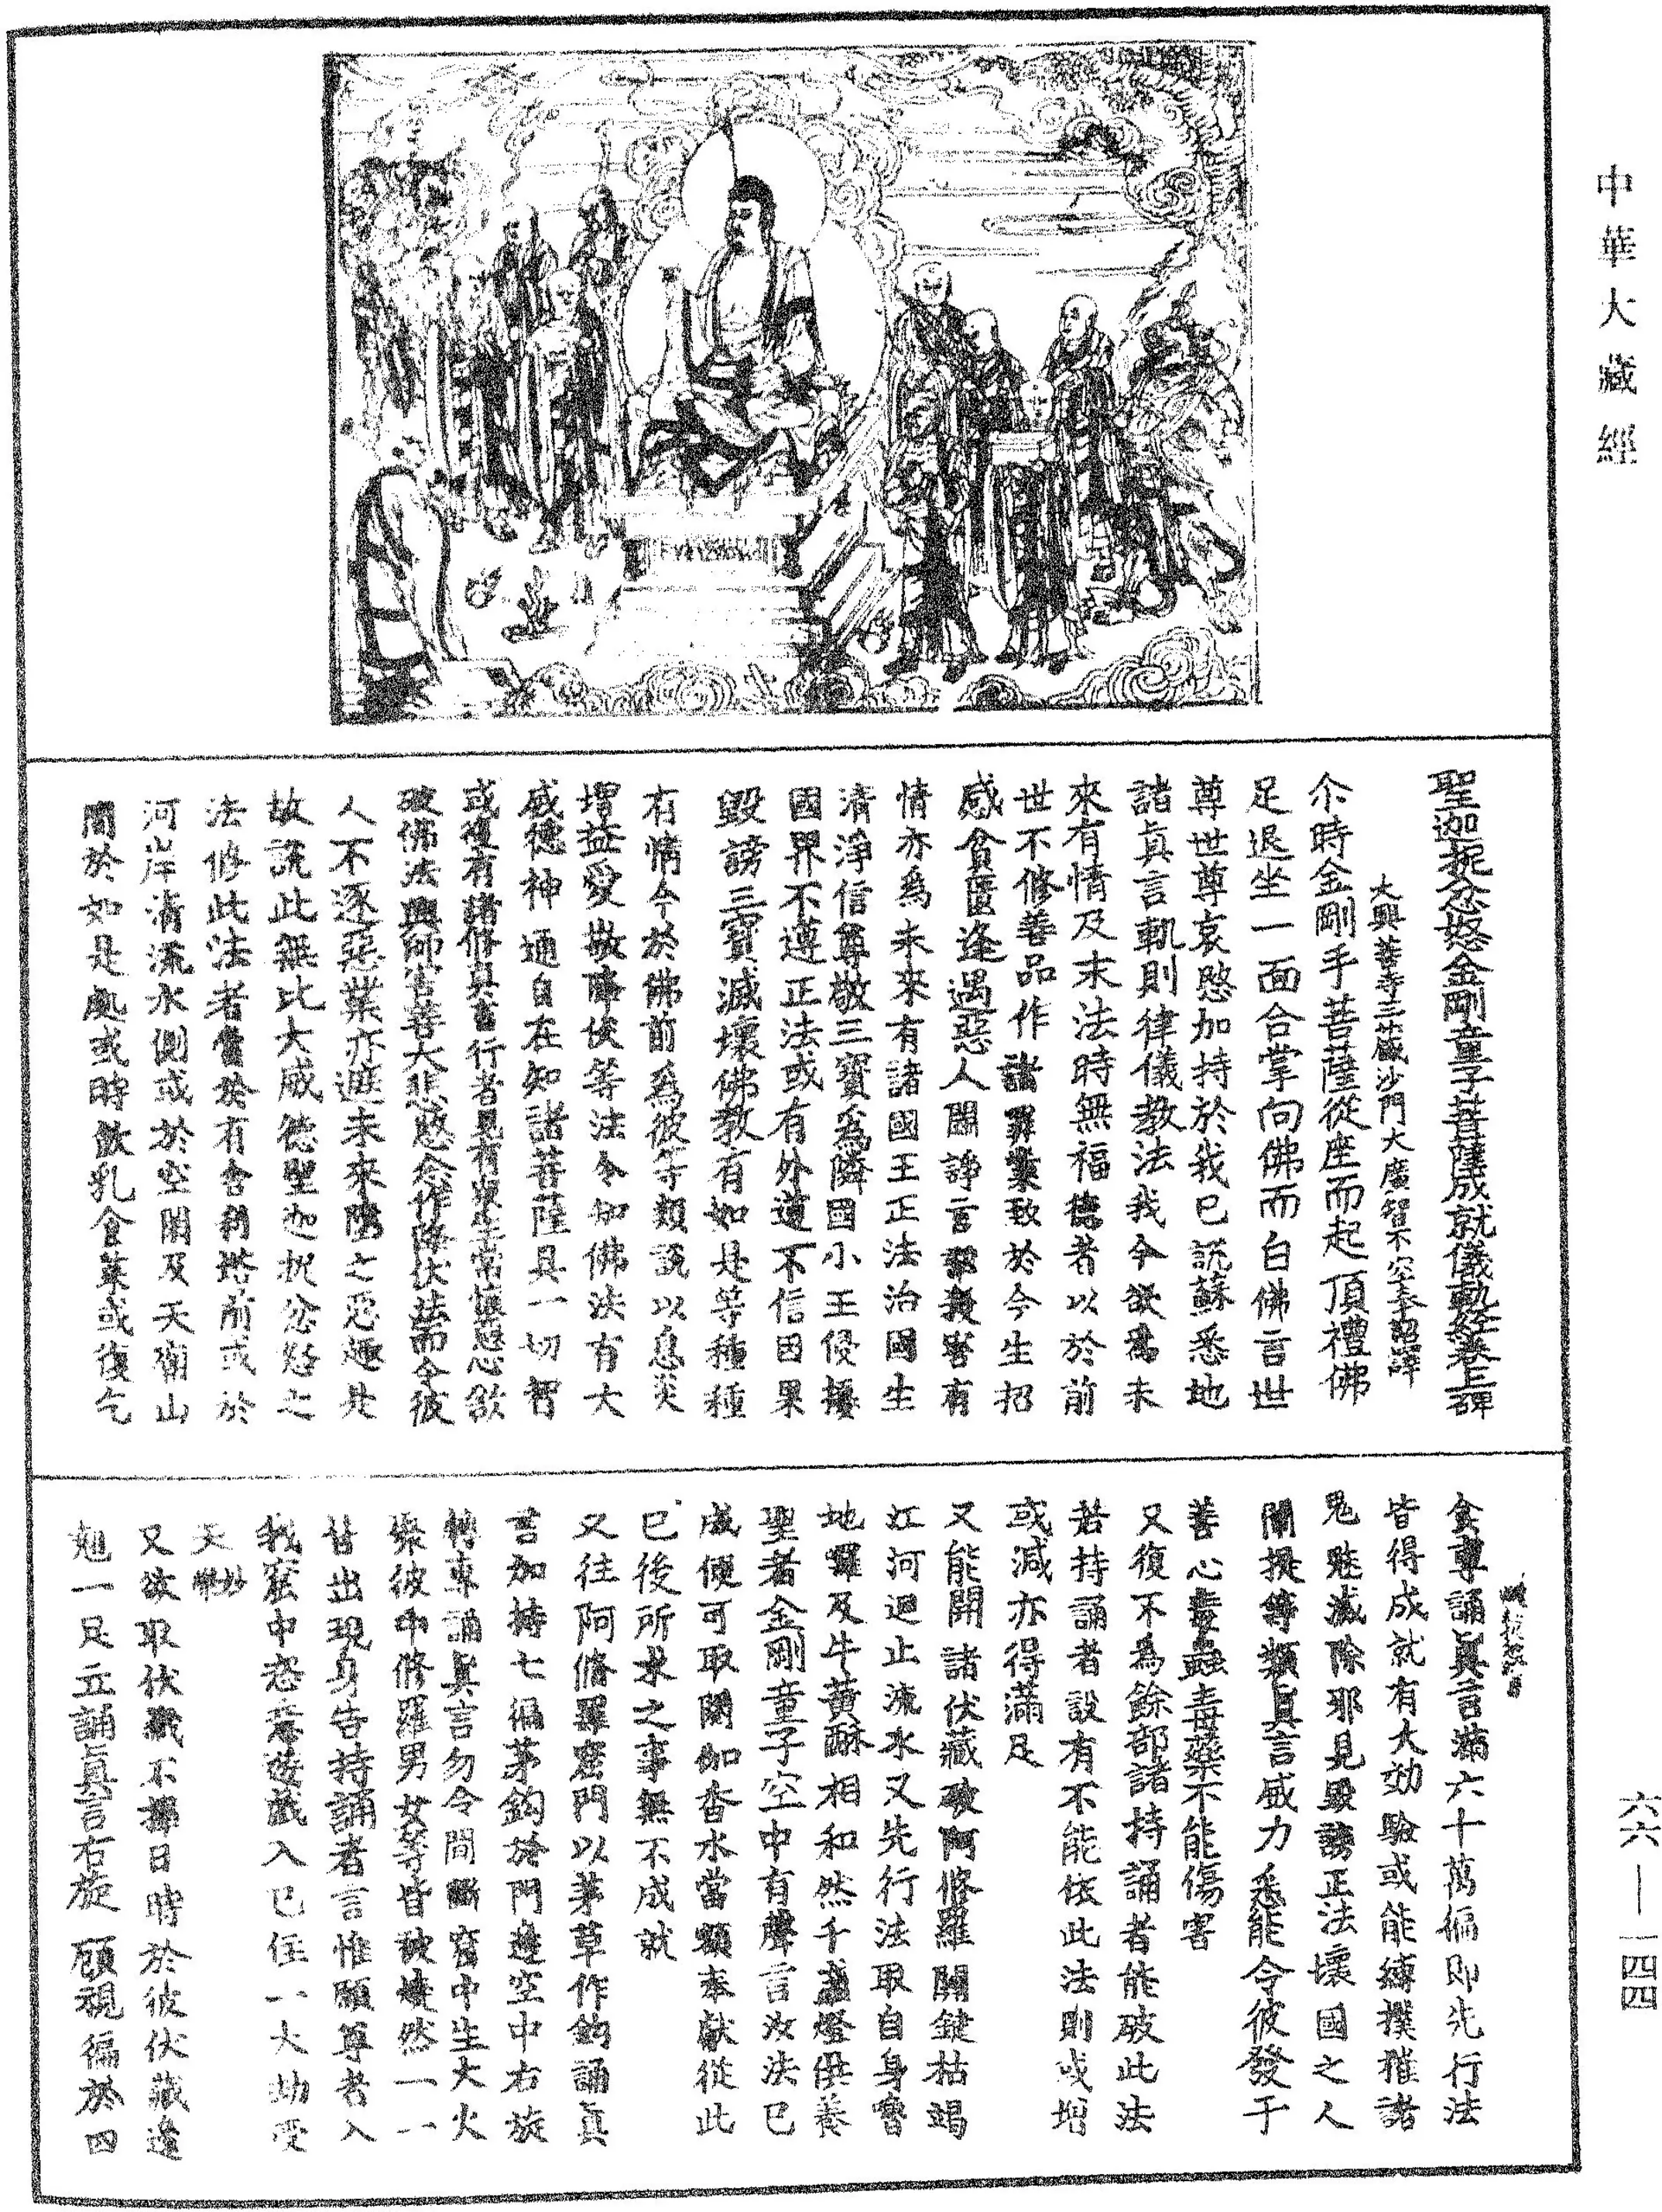 中華大藏經
聖迦抳忿怒金剛童子菩薩成就儀軌經卷上 譯
大興善寺三藏沙門大廣智不空奉詔譯
尒時金剛手菩薩從座而起頂禮佛
足退坐一面合掌向佛而白佛言世
尊世尊哀愍加持於我已說蘇悉地
諸真言軌則律儀教法我今欲爲未
來有情及末法時無福德者以於前
世不修善品作諸罪業致於今生招
感貧匱逢遇惡人鬪諍言訟殺害有
情亦爲未來有諸國王正法治國生
清淨信尊敬三寶爲隣國小王侵擾
國界不遵正法或有外道不信因果
毀謗三寶滅壞佛教有如是等種種
有情今於佛前爲彼等類說以息災
增益愛敬降伏等法令知佛法有大
威德神通自在知諸菩薩具一切智
或復有諸修真言行者見有衆生常懷惡心欲
破佛法與師害善大悲愍念作降伏法而令彼
人不逐惡業亦遮未來墮之惡趣是
故說此無比大威德聖迦抳忿怒之
法修此法者當於有舍利塔前或於
河岸清流水側或於空閑及天廟山
間於如是處或時飲乳食菜或復乞
食專誦真言滿六十萬徧即先行法
皆得成就有大効驗或能縛撲摧諸
鬼魅滅除邪見毀謗正法壞國之人
闡提等類真言威力悉能令彼發于
善心毒蟲毒藥不能傷害
又復不為餘部諸持誦者能破此法
若持誦者設有不能依此法則或增
或減亦得滿足
又能開諸伏藏破阿修羅關鍵枯竭
江河迴止流水又先行法取自身嚕
地囉及牛黃酥相和然千盞燈供養
聖者金剛童子空中有聲言汝法已
成便可取閼伽香水當額奉獻從此
已後所求之事無不成就
又往阿修羅窟門以茅草作鈎誦真
言加持七徧茅鈎於門邊空中右旋
轉專誦真言勿令間斷窟中生大火
聚彼中修羅男女等皆被燒然一一
皆出現身告持誦者言惟願尊者入
我窟中恣意遊戲入已住一大劫受
天妙樂
又欲取伏藏不擇日時於彼伏藏邊
翹一足立誦真言右旋顧視徧於四
六六—一四四